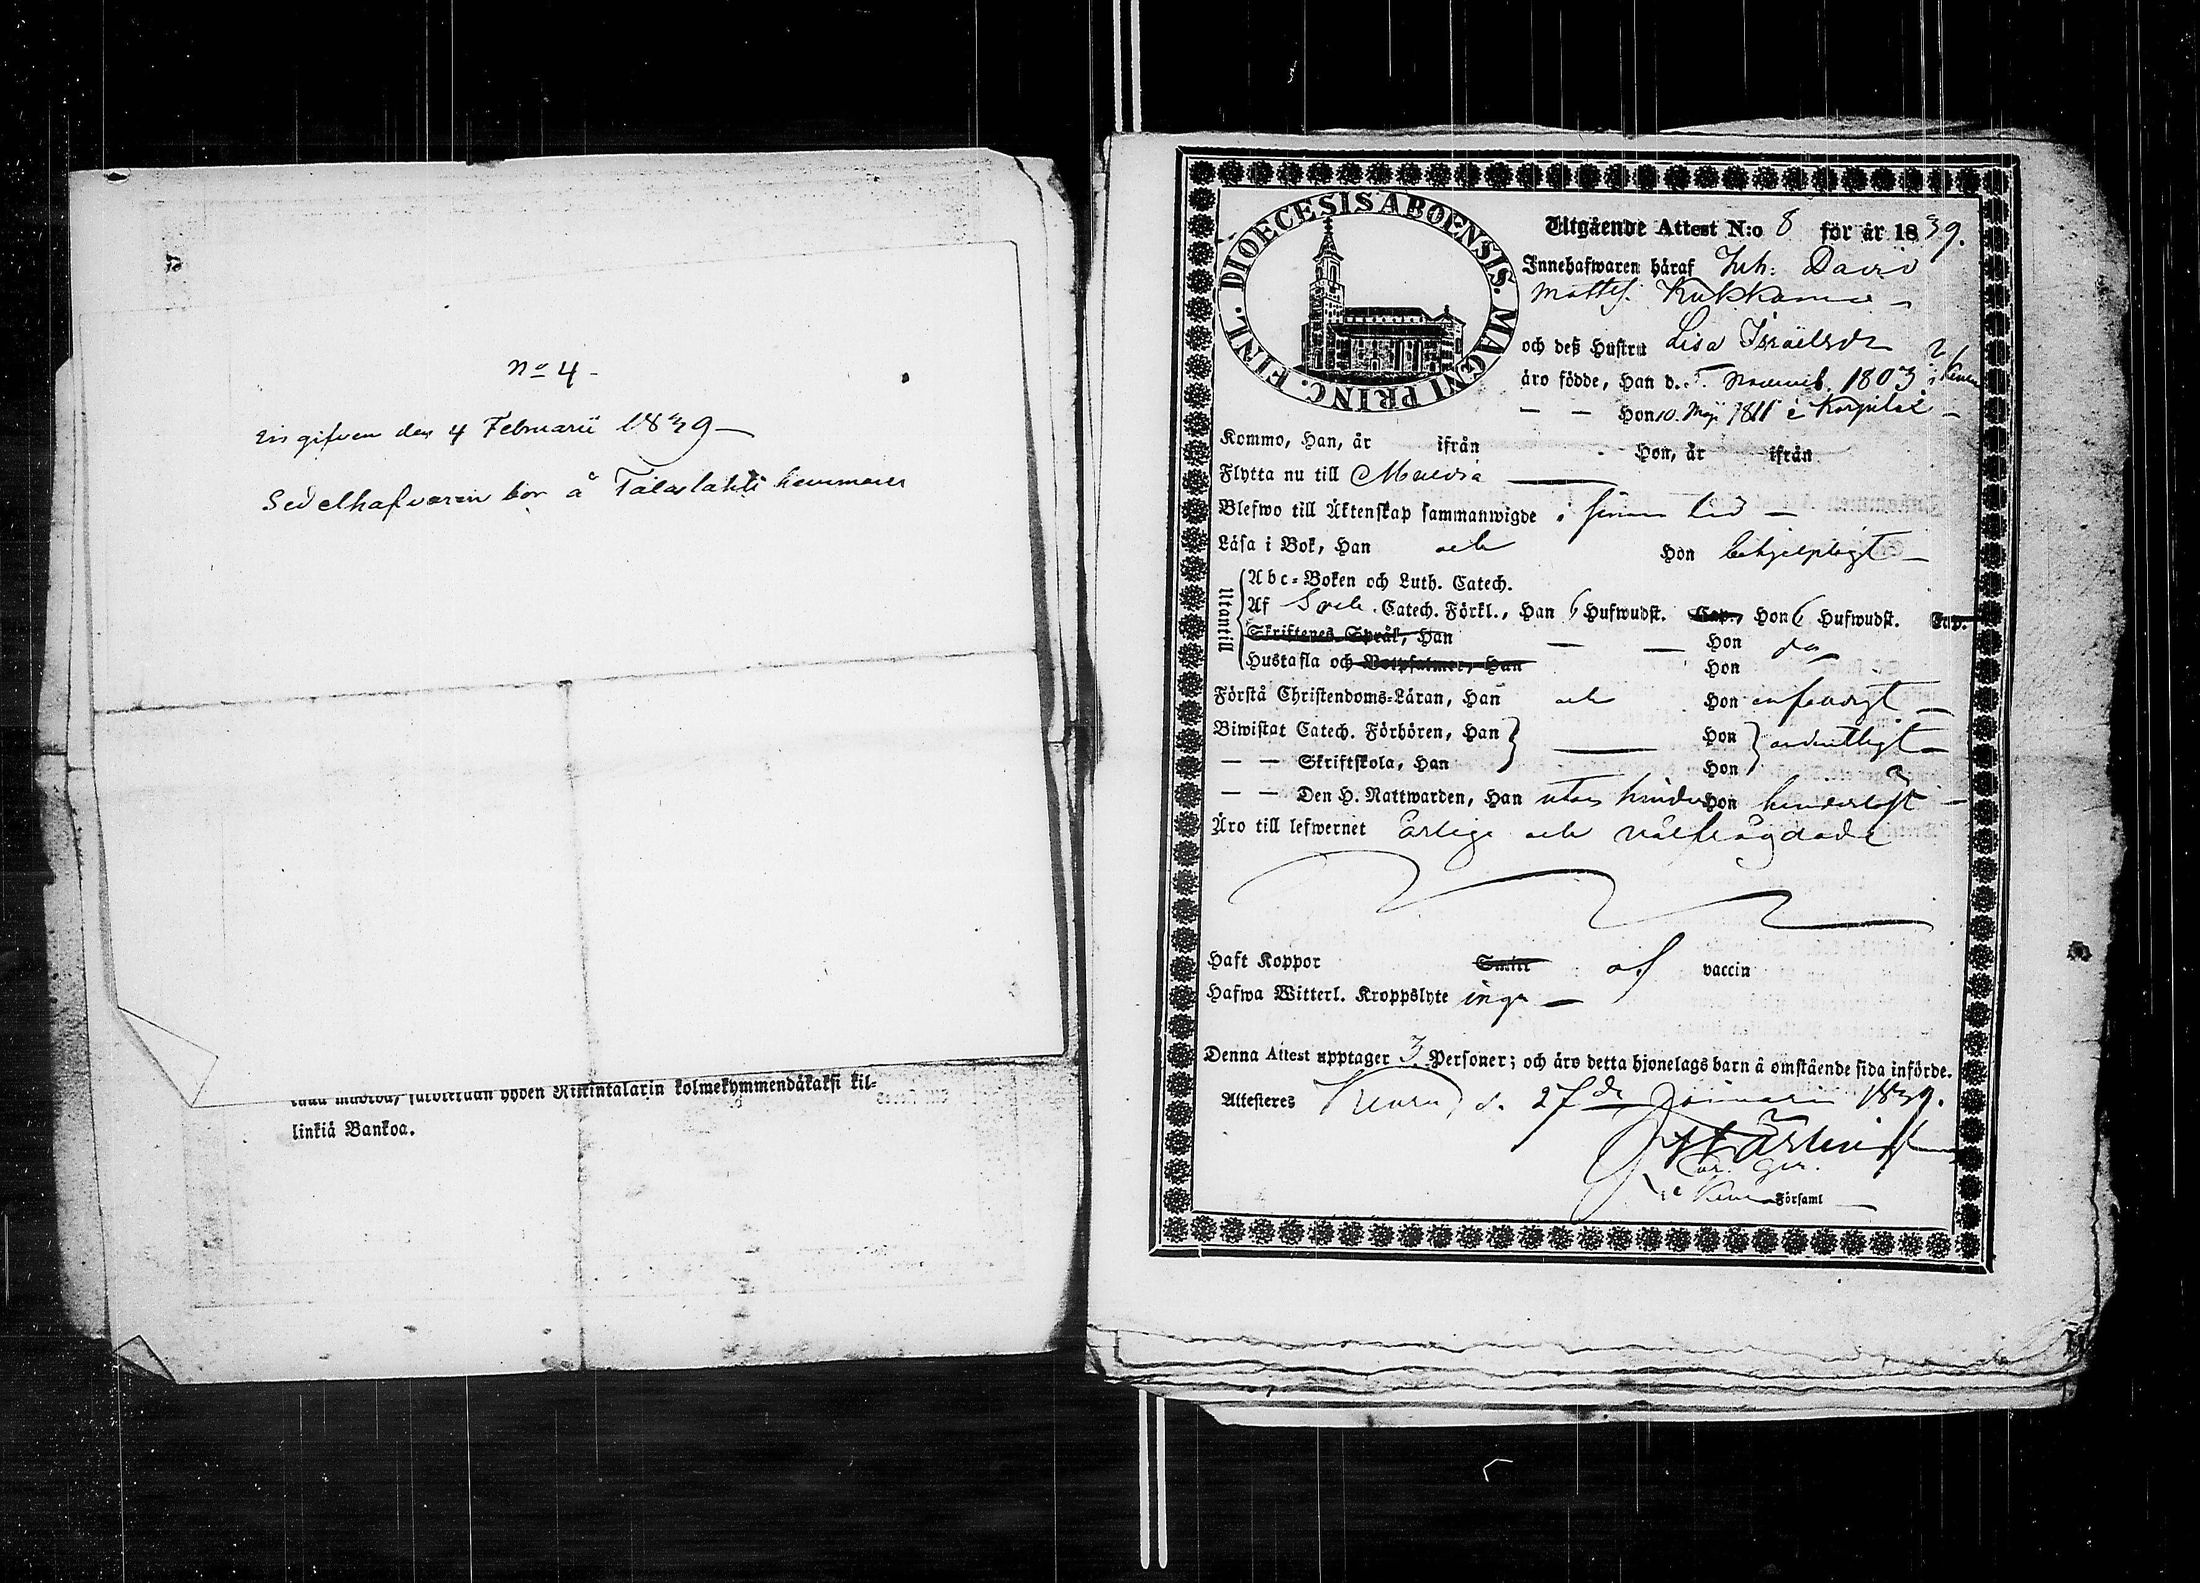 No 4 -
Ingifven den 4 Februarii 1839 —
Sedelhafvaren bor å Talaslahti hemman
hyden Riikintalarin kolmekymmendäkaksi kil-
linkiä Bankoa.
DIOECESIS ABOENSIS. MAGNI PRINC. FINL.
Utgående Attest N:o 8 för år 1839.
Innehafwaren häraf Joh: David
Mattss. Kukkanie —
och deß Hustru Lisa Israelsdr
äro födde, Han d. 5 Novemb. 1803 i Keuru
— — Hon 10 Maji 1811 i Korpilax —
Kommo, Han, år ifrån Hon, år ifrån
Flytta nu till Multia —
Blefwo till Äktenskap sammanwigde i sinom tid —
Läsa i Bok, Han och Hon behjelpligt —
Utantill
Abc-Boken och Luth. Catech.
Af Sveb. Catech. Förkl., Han 6 Hufwudst. Cap., Hon 6 Hufwudst. Cap.
Skriftenes Språk, Han — — Hon do
Hustafla och Botpsalmer, Han Hon
Förstå Christendoms-Läran, Han och Hon enfaldigt —
Biwistat Catech. Förhören, Han — Hon ordentligt —
— — Skriftskola, Han Hon
— — Den H. Nattwarden, Han utan hinder Hon hinderlöst —
Äro till lefwernet ärlige och välfrägdade
Haft Koppor Smitt af vaccin
Hafwa Witterl. Kroppslyte inga —
Denna Attest upptager 3 Personer; och äro detta hjonelags barn å omstående sida införde.
Attesteres Keuru d. 27de Januarii 1839.
i Keuru Församl —